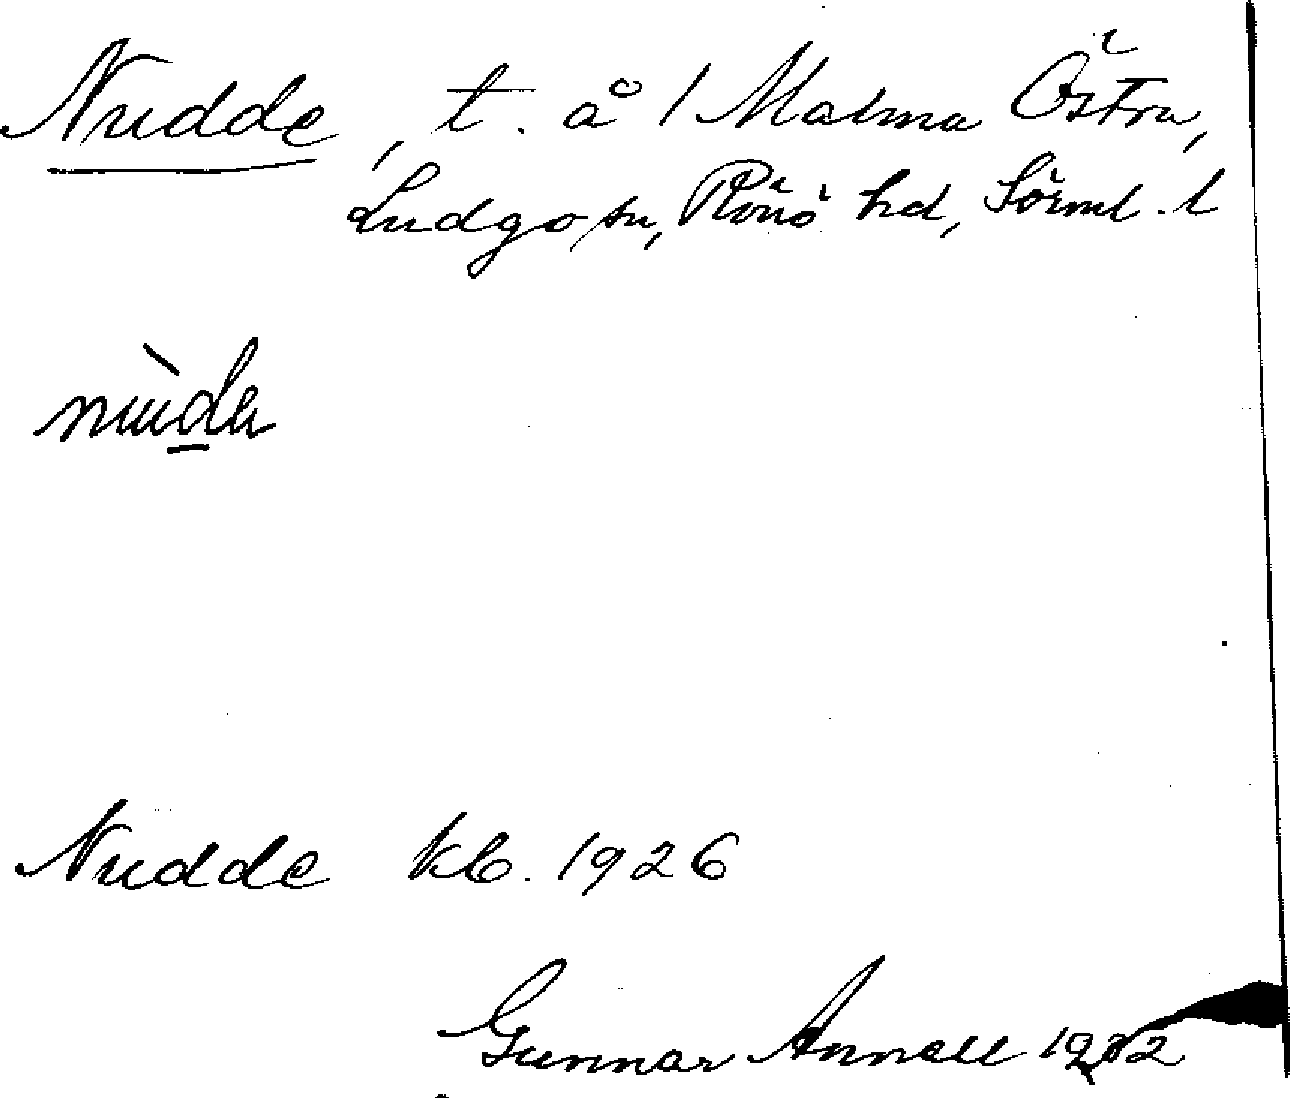 Nudde, t. å / Malma Östra,
Ludgo sn, Rönö hd, Sörml. l
Nudde kb. 1926
Gunnar Annell